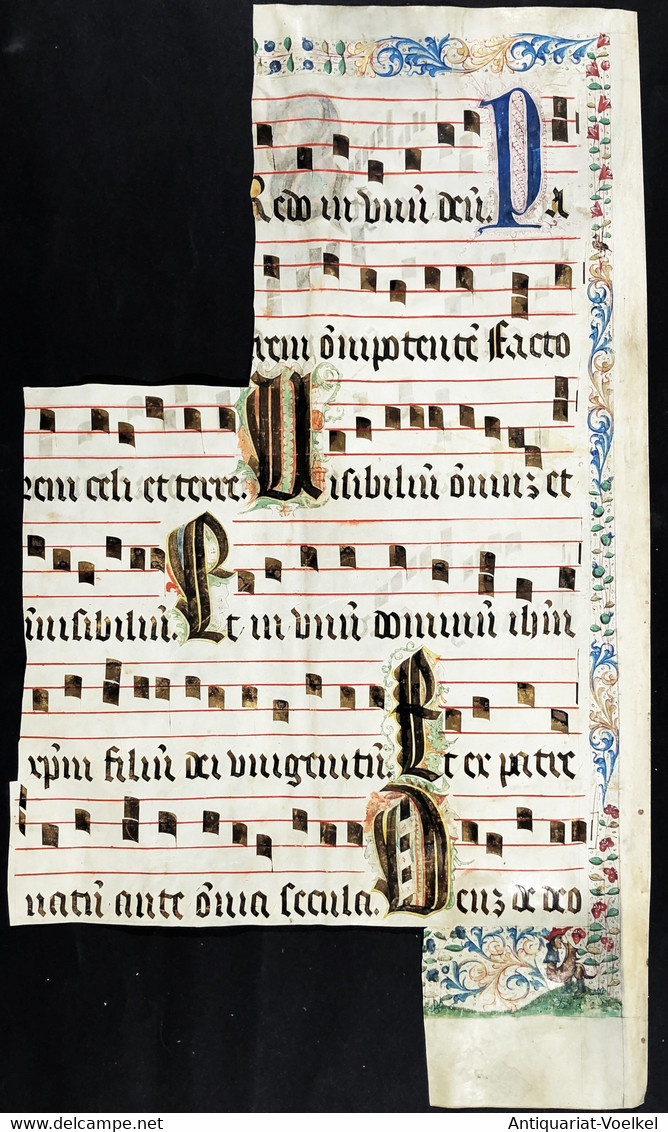 Redo in vnū deū. Pa
trem ōnipotentē Facto
rem celi et terre. Uisibiliū ōniuz et
īuisibiliū. Et in vnū dominū ihm̄
xpm̄ filiū dei vnigenitū. Et ex patre
natū ante ōnia secula. Deus de deo
www.delcampe.net
Antiquariat-Voelkel